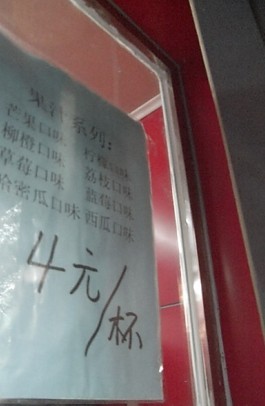 果汁系列:
芒果口味 柠檬口味
柳橙口味 荔枝口味
草莓口味 蓝莓口味
哈密瓜口味 西瓜口味
4元/杯